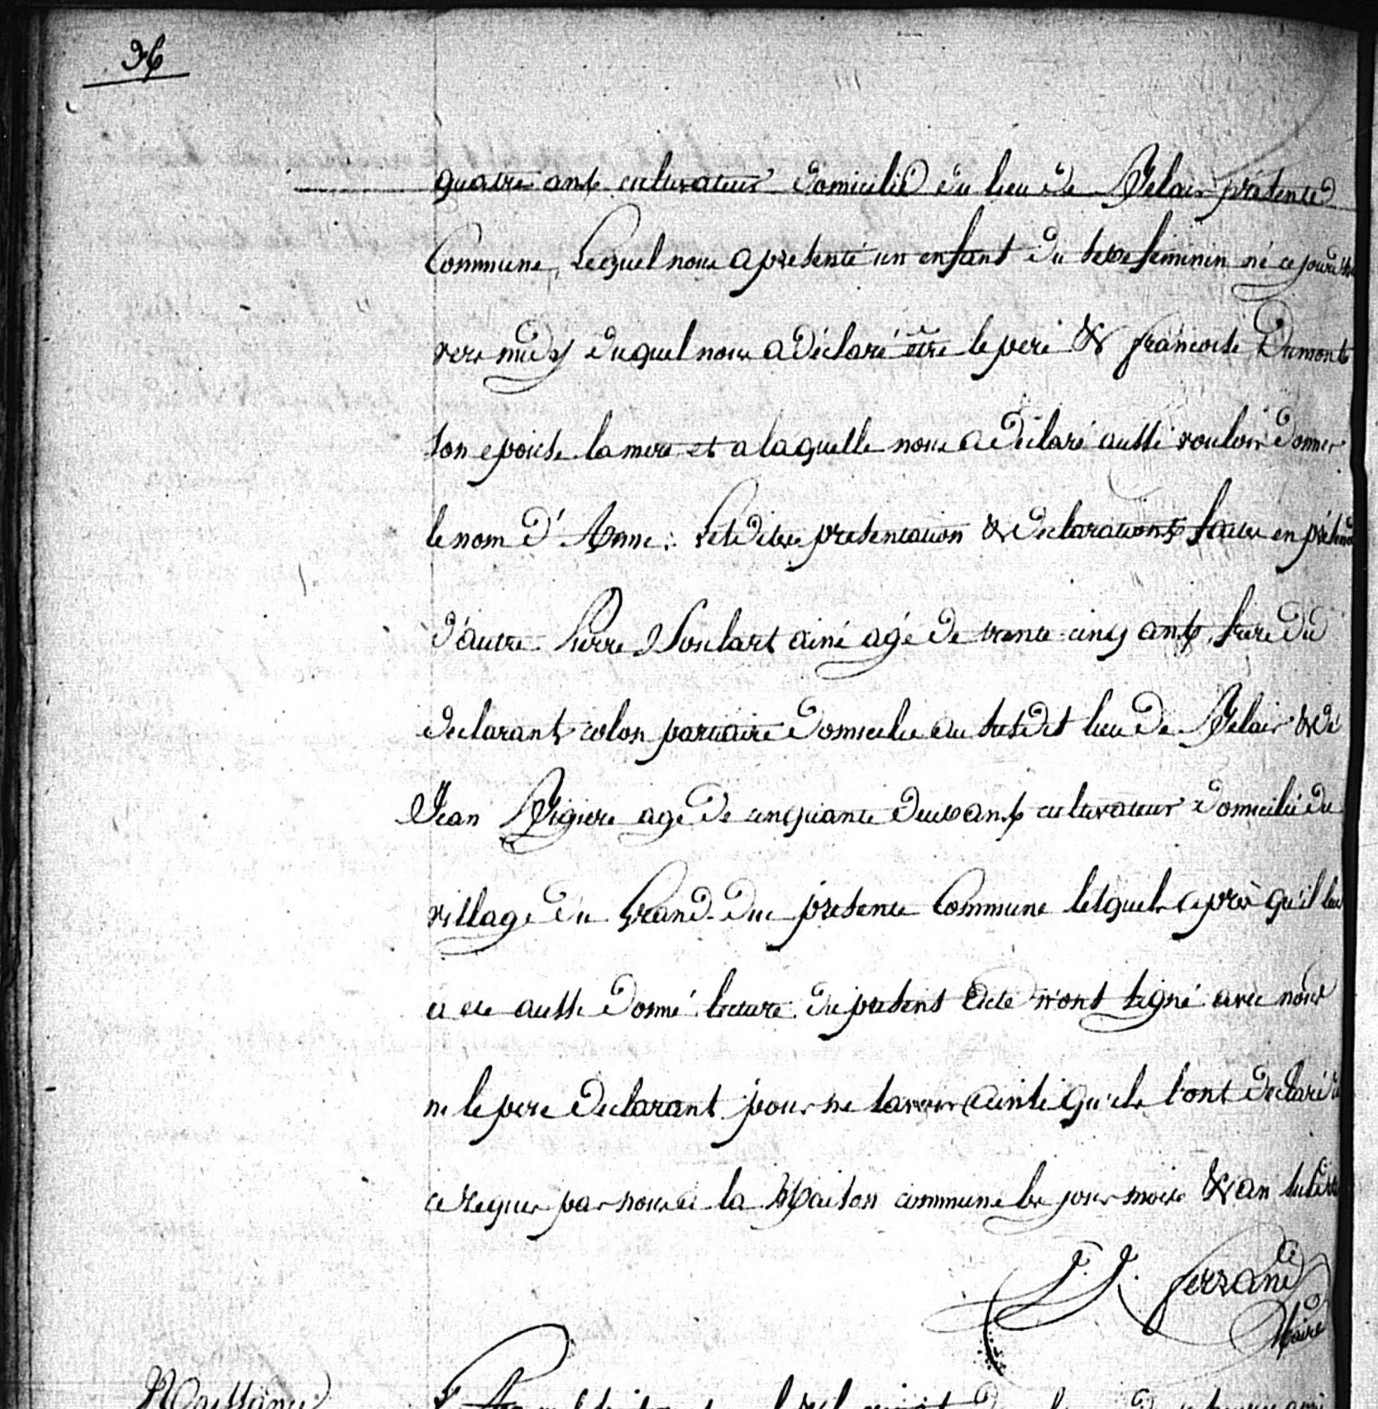 36
quatre ans cultivateur domicilié du lieu de Belair présente
Commune, Lequel nous a presenté un enfant du sexe feminin né ce jourd'hui
vers midy duquel nous a déclaré être le pere & francoise Dumont
son epouse la mere et a laquelle nous a déclaré aussi vouloir donner
le nom d'Anne. Lesdites presentation & declarations faites en présence
d'autre Pierre Soulart ainé agé de trente cinq ans, frere du
declarant, colon partiaire domicilie au susdit lieu de Belair & de
Jean agé de cinquante deux ans cultivateur domicilié du
village du Grand-duc présente Commune lesquels après qu'il leur
a été aussi donné lecture du présent acte n'ont signé avec nous
ni le pere declarant pour ne savoir ainsi qu'ils l'ont declaré
ce requis par nous à la Maison commune les jour mois & an susdits
J. J. ferrand
Maire
Naissance